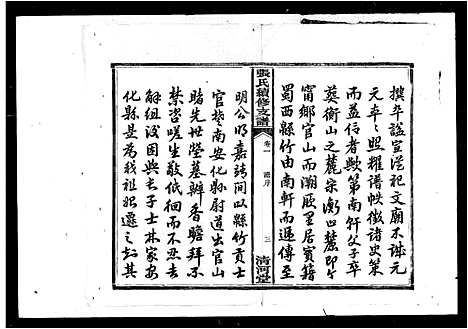 撰年諡宣從祀文廟不誠元
元卓之照耀譜帙徵諸史策
而益信者歟第南軒父子卒
葬衡山之麓宗衡凹麓即今
甯鄉官山而溯厥里居實籍
蜀西縣竹由南軒而遞傳至
張氏續修支譜
卷一
譜序
三
清河堂
明公明嘉靖間以縣竹貢士
官楚南安化縣尉道出官山
睹先世塋墓辦香瞻拜不
禁咨嗟生敬低徊而不忍去
解組後因與長子士林家安
化縣是為我祖妣遷之也其